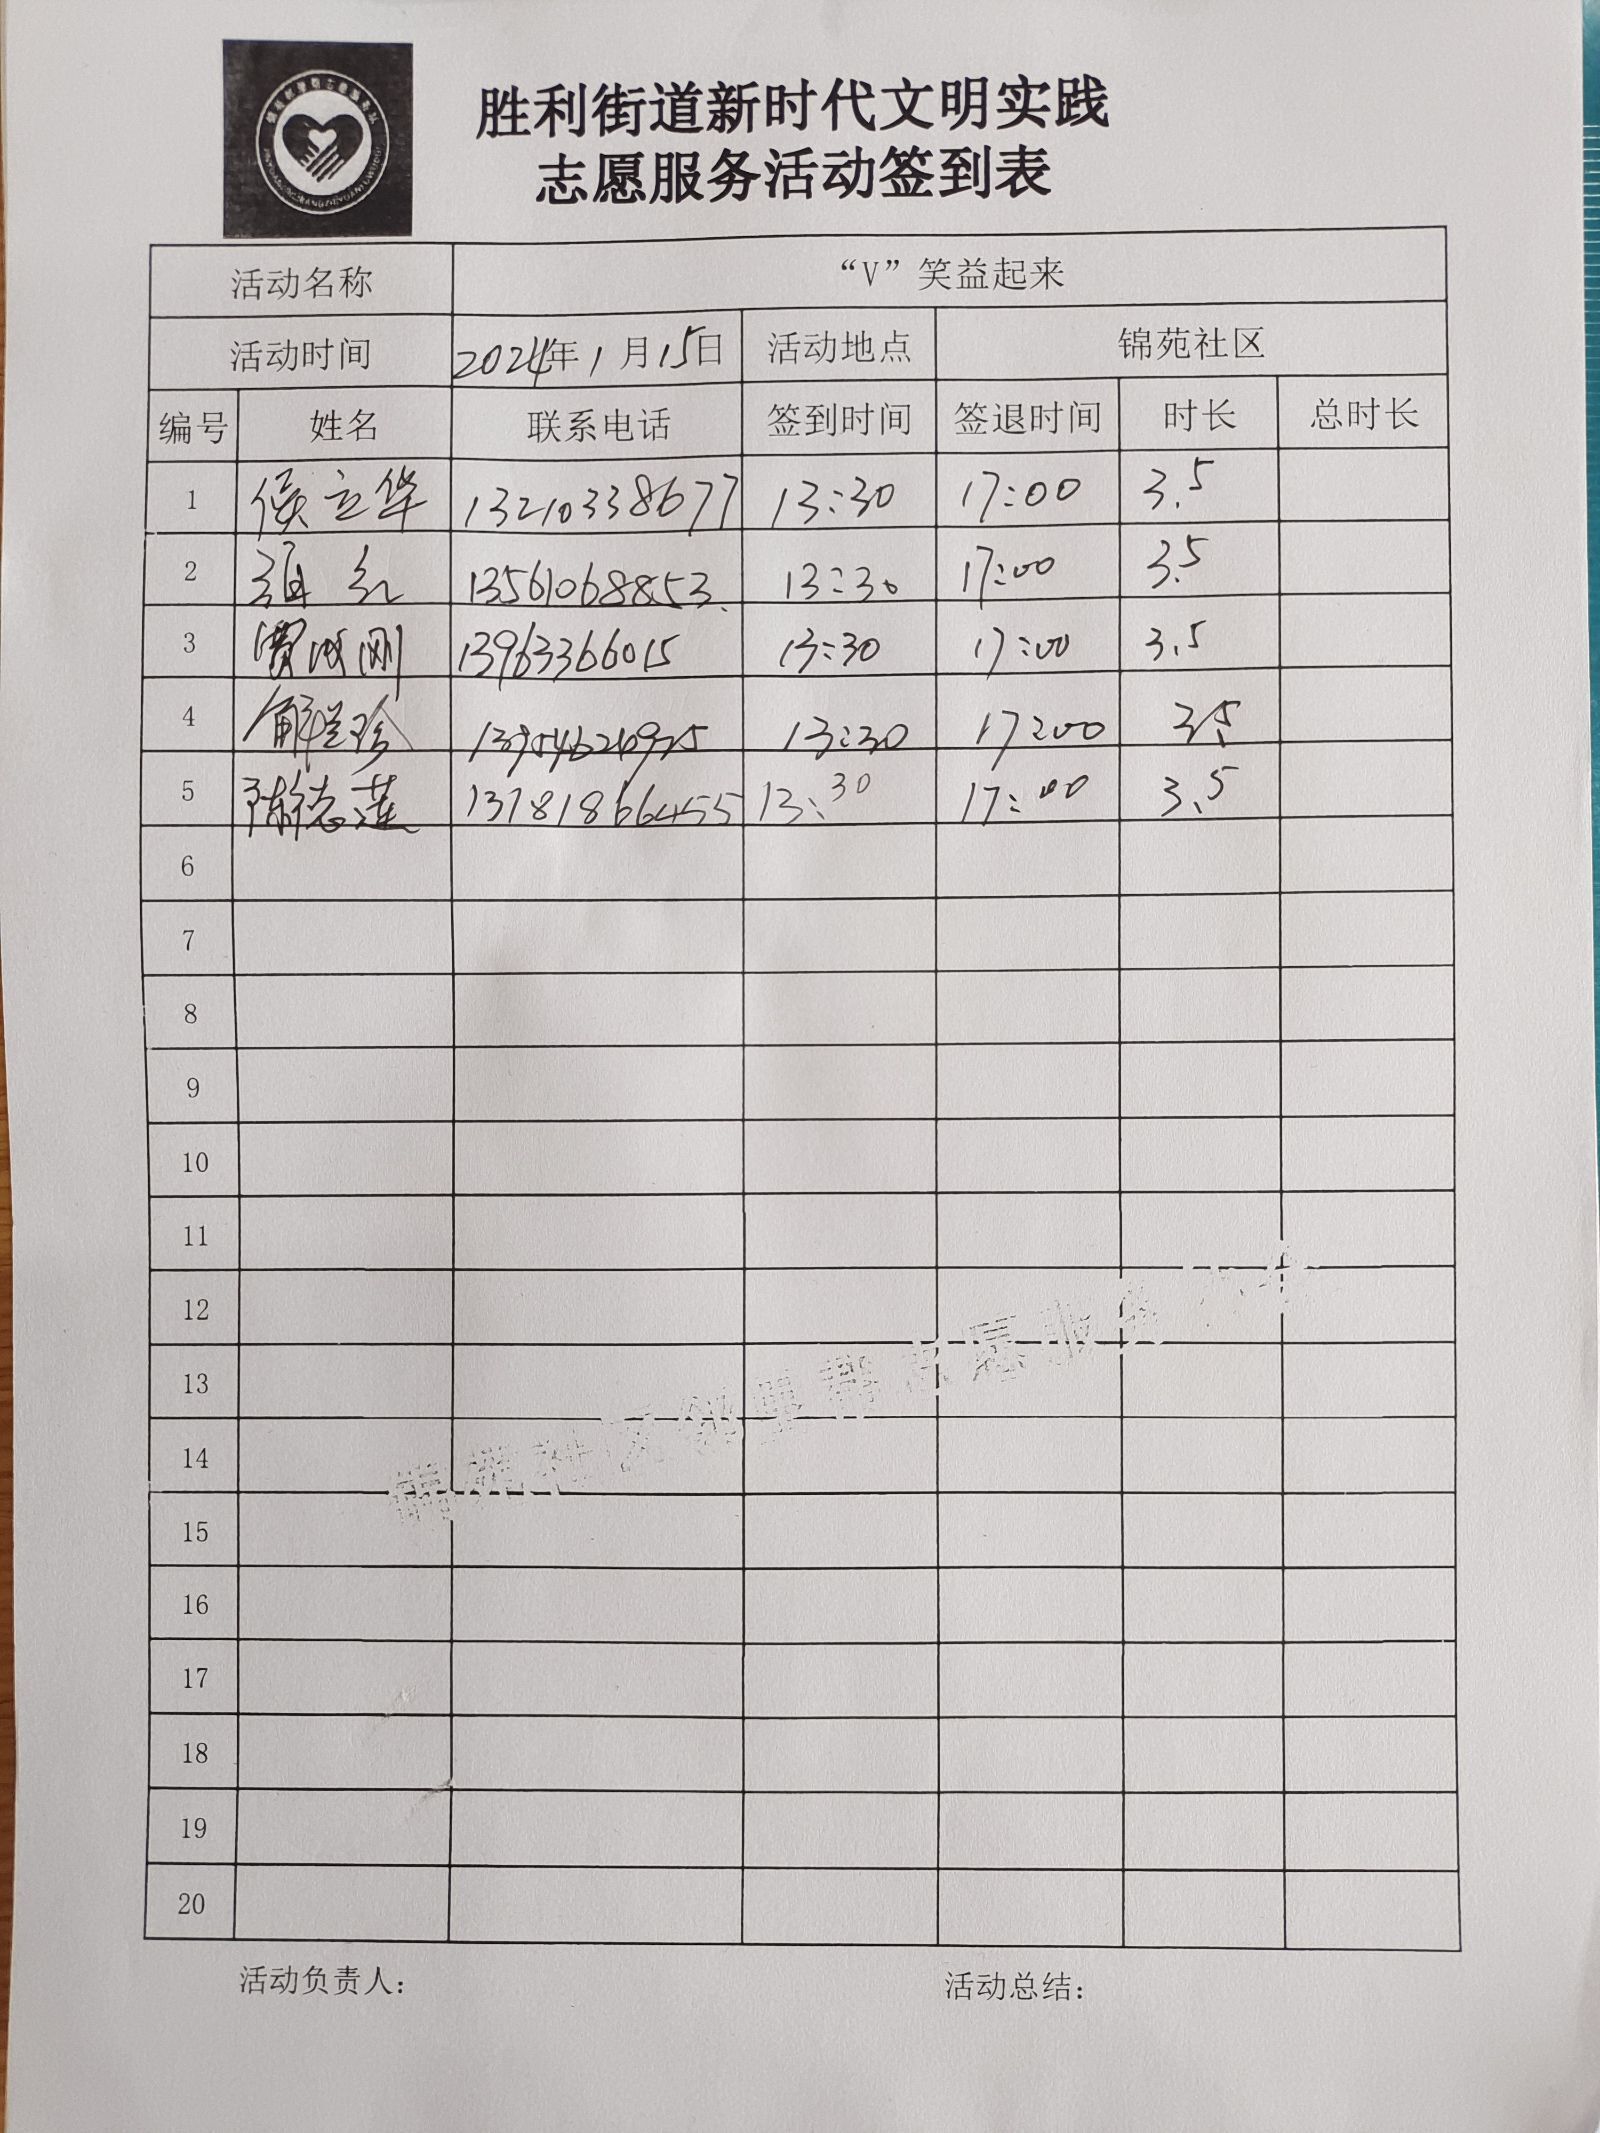 胜利街道新时代文明实践
志愿服务活动签到表
活动名称 “V”笑益起来
活动时间 2024年1月15日 活动地点 锦苑社区
编号 姓名 联系电话 签到时间 签退时间 时长 总时长
1 侯立华 13210338677 13:30 17:00 3.5
2 13561068853 13:30 17:00 3.5
3 13963366015 13:30 17:00 3.5
4 13:30 17:00 3.5
5 陈德莲 13781866455 13:30 17:00 3.5
6
7
8
9
10
11
12
13
14
15
16
17
18
19
20
活动负责人: 活动总结: